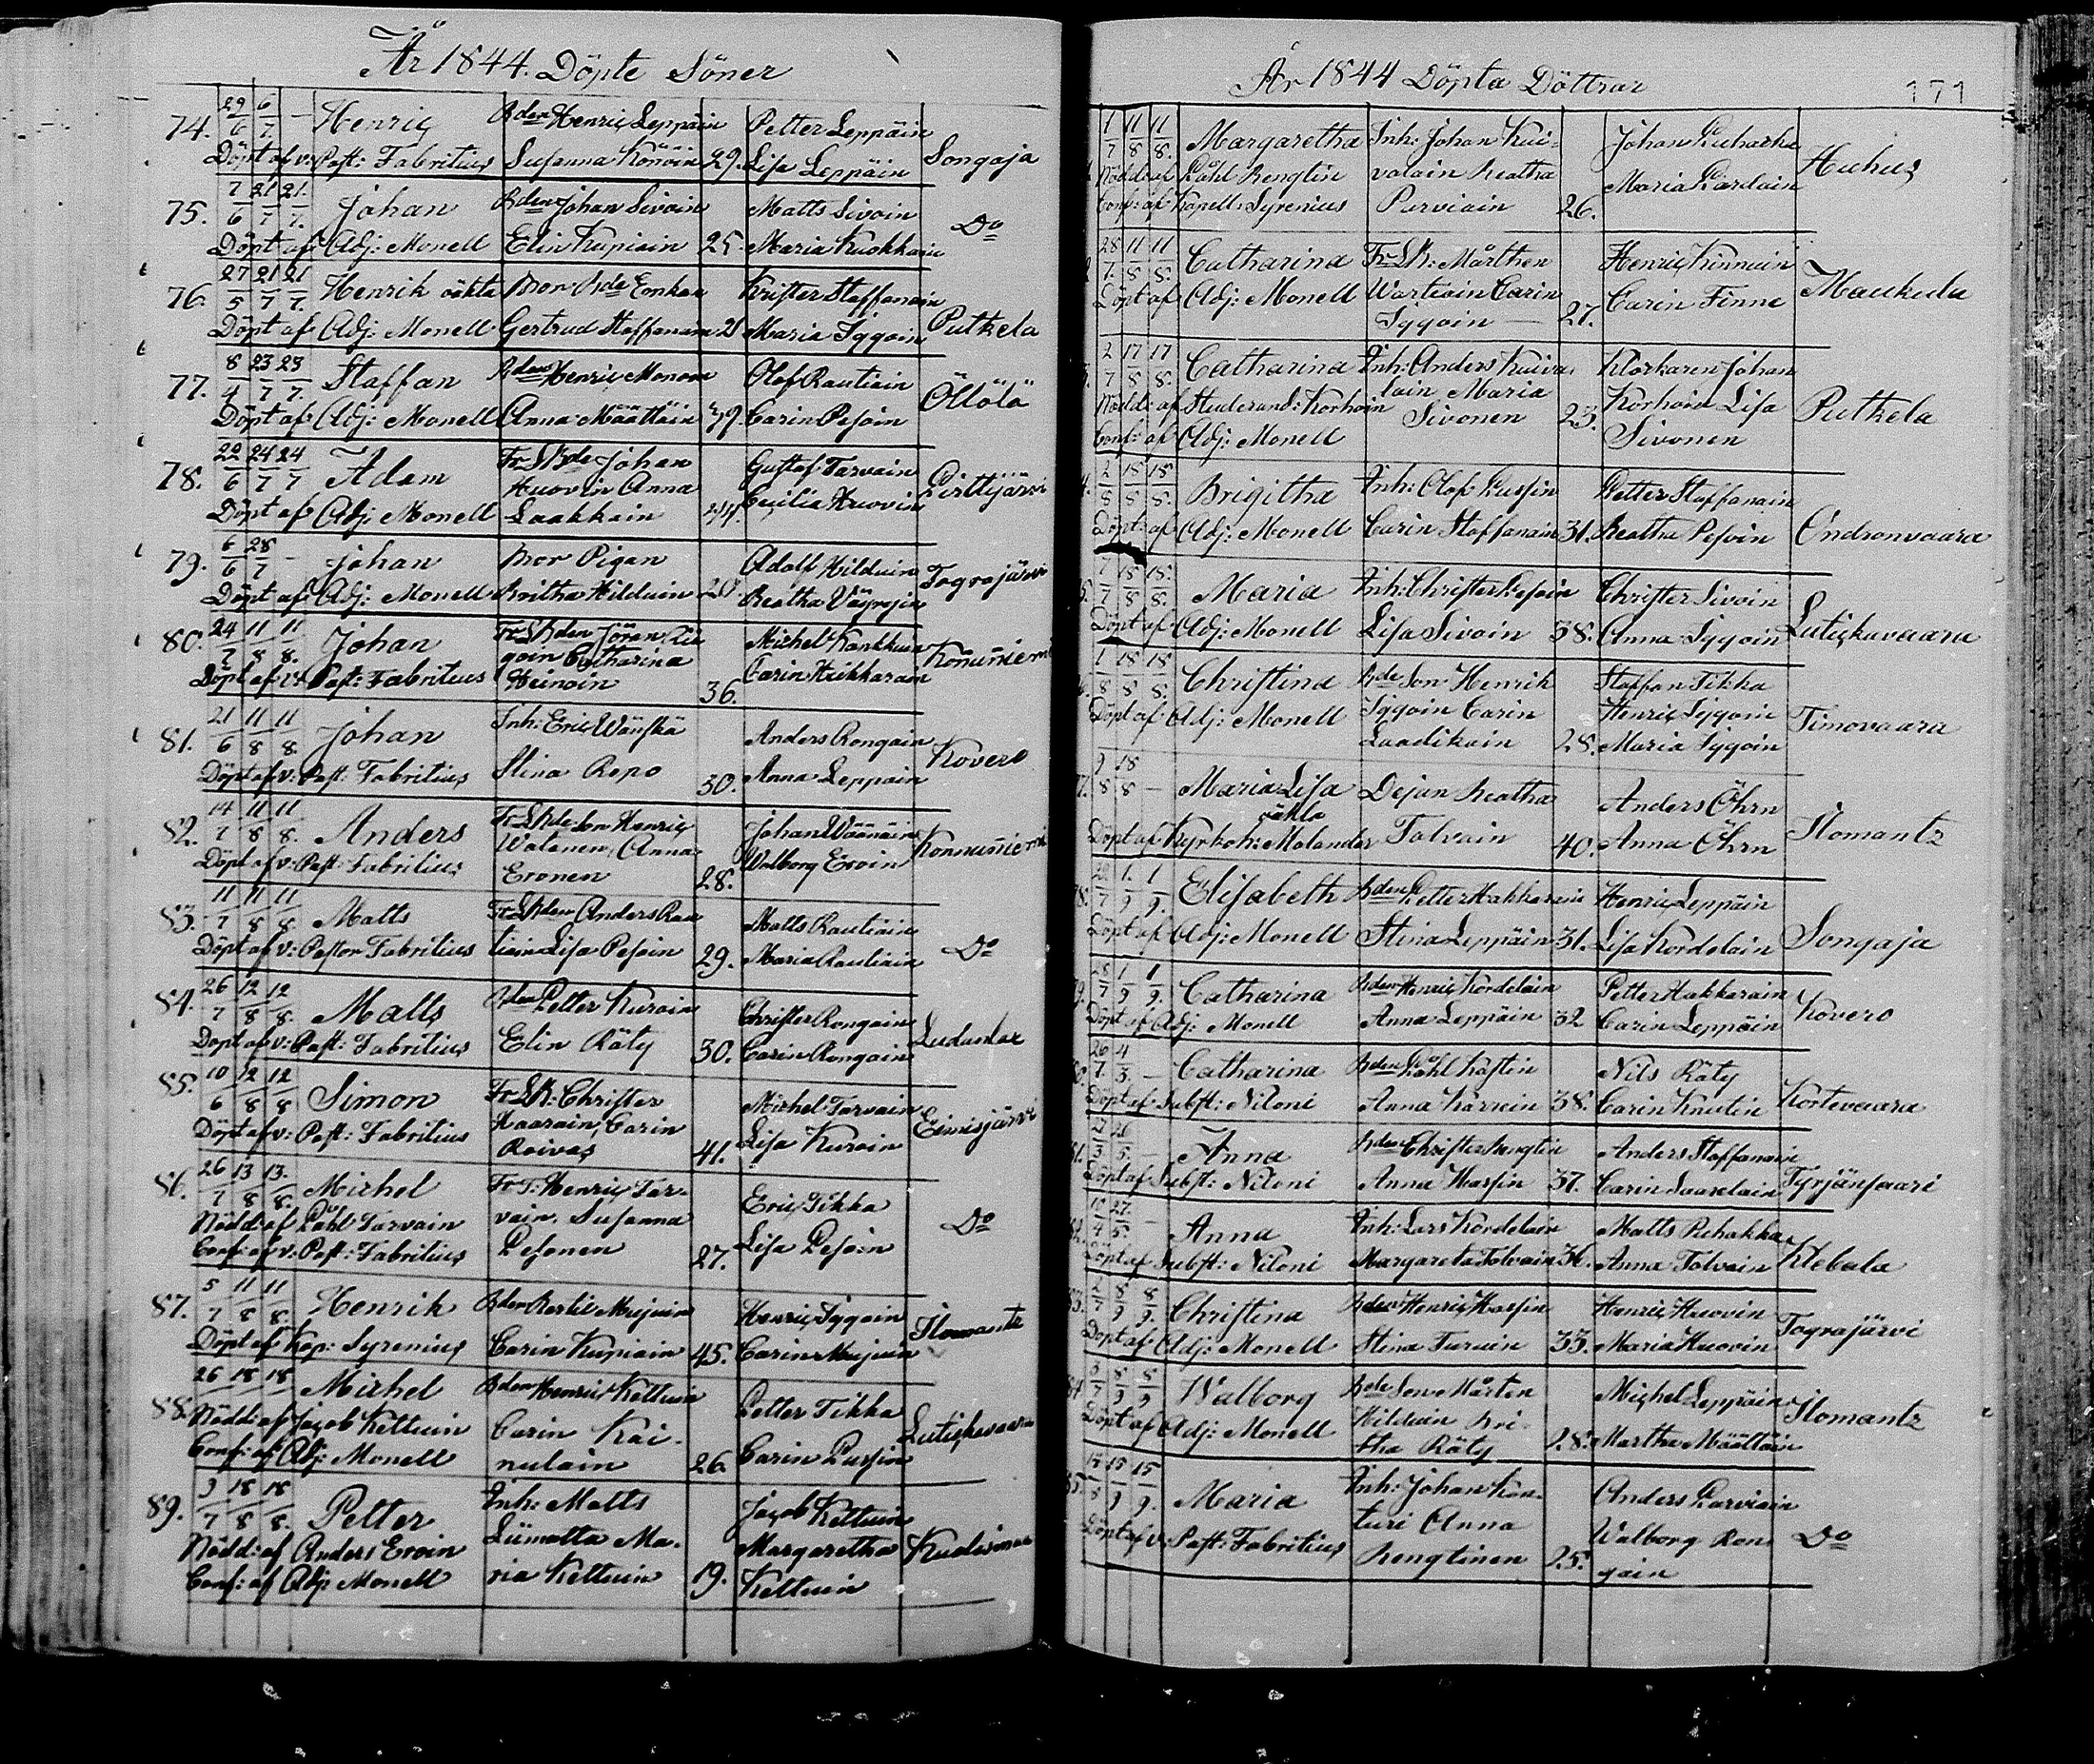 År 1844. Döpte Söner
74. 29/6 6/7. — Henric Bden Henric Leppäin Petter Leppäin Songaja
Döpt af v: Past: Fabritius Susanna Könöin 29. Lisa Leppäin
75. 7/6 21/7 21/7. Johan Bden Johan Sivoin Matts Sivoin Do
Döpt af Adj: Monell Elin Kupiain 25. Maria Kuokkain
76. 27/5 21/7 21/7. Henrik oäkta Mor Bde Enkan Krister Staffanain Putkela
Döpt af Adj: Monell Gertrud Staffanain 28 Maria Iggoin
77. 8/4 23/7 23/7. Staffan Bden Henric Monom Olof Rautiain Öllölä
Döpt af Adj: Monell Anna Määttäin 39. Carin Pesoin
78. 22/6 24/7 24/7 Adam Fr. SBde Johan Gustaf Tarvain Pirttijärvi
Huovin Anna Cecilia Huovin
Döpt af Adj: Monell Laakkain 44.
79. 6/6 28/7 — Johan Mor Pigan Adolf Hilduin Tograjärvi
Döpt af Adj: Monell Britha Hilduin 20. Beatha Väyrojin
80. 24/7 11/8 11/8. Johan Fr. SBden Jöran Ig Michel Kankkuin Konunniemi
goin Catharina Carin Keikkarain
Döpt af v: Past: Fabritius Heinoin 36.
81. 21/6 11/8 11/8. Johan Inh: Eric Wänskä Anders Rongain Kovero
Döpt af v: Past: Fabritius Stina Repo 30. Anna Leppäin
82. 14/7 11/8 11/8. Anders Fr. SBde Son Henric Johan Wäänäin Konnunniemi
Watanen, Anna Walborg Eroin
Döpt af v: Past: Fabritius Eronen 28.
83. 11/7 11/8 11/8. Matts Fr. SBden Anders Rau Matts Rautiain Do
Döpt af v: Pastor Fabritius tiain Lisa Pesoin 29. Maria Rautiain
84. 26/7 12/8 12/8. Matts Bden Petter Kuroin Christer Rongain
Döpt af v: Past: Fabritius Elin Räty 30. Carin Rongain
85. 10/6 12/8 12/8 Simon Fr. SB: Christer Michel Tarvain Eimisjärvi
Haarain, Carin Lisa Kuroin
Döpt af v: Past: Fabritius Roivas 41.
86. 26/7 13/8 13/8. Michel Fr. T: Henric Tar- Eric Tikka Do
Nödd: af Påhl Tarvain vain. Susanna
Conf: af v: Past: Fabritius Pesonen 27. Lisa Pesoin
87. 5/7 11/8 11/8. Henrik Bden Bertil Mujuin Henric Iggoin Ilomantz
Döpt af Kap: Syrenius Carin Kupiain 45. Carin Mujuin
88. 26 18 18 Michel Bden Henric Kettuin Petter Tikka Lutiskavaara
Nödd: af Jacob Kettuin Carin Kai-
Conf: af Adj: Monell nulain 26. Carin Pussin
89. 9/7 18/8 18/8. Petter Inh: Matts Jacob Kettuin
Nödd: af Anders Eroin Liimatta Ma- Margaretha
Conf: af Adj: Monell ria Kettuin 19. Kettuin
År 1844 Döpta Döttrar 171
1/7 11/8 11/8. Margaretha Inh: Johan Kui- Johan Huhus
Nödd: af Påhl Rengtin valain Beatha Maria
Conf: af Kapell: Syrenius Purviain 26.
28/7. 11/8 11/8. Catharina Fr. SB: Mårthen Henric Kinnuin Maukula
Döpt af Adj: Monell Wartiain Carin Carin Finne
Iggoin — 27.
2/7 17/8 17/8. Catharina Inh: Anders Kuiva Klockaren Johan Putkela
Nödd: af Studerand: Korhoin lain Maria Korhoin Lisa
Conf: af Adj: Monell Sivonen 23. Sivonen
2/8 18/8 18/8. Brigitha Inh: Olof Pussin Petter Staffanain Ondronvaara
Döpt af Adj: Monell Carin Staffanain 31. Beatha Pesoin
7/7 18/8 18/8. Maria Inh: Christer Pesoin Christer Sivoin Lutiskavaara
Döpt af Adj: Monell Lisa Sivoin 38. Anna Iggoin
1/8 18/8 18/8. Christina Bde Son Henrik Staffan Tikka Timovaara
Döpt af Adj: Monell Iggoin Carin Henric Iggoin
Laadikain 28. Maria Iggoin
9/8 18/8 — Maria Lisa Dejan Beatha Anders Öhrn Ilomantz
oäkta
Döpt af Kyrkoh: Molander Tolvain 40. Anna Öhrn
1/9 1/9. Elisabeth Bden Petter Hakkarain Henric Leppäin Songaja
Döpt af Adj: Monell Stina Leppäin 31. Lisa Kordelain
28/7 1/9 1/9. Catharina Bden Henric Kordelain Petter Hakkarain Kovero
Döpt af Adj: Monell Anna Leppäin 32 Carin Leppäin
26/7. 4/3. — Catharina Bden Påhl Nils Räty Kortevaara
Döpt af Subst: Niloni Anna Kärnein 38. Carin Knutin
26/5. — Anna Bden Christer Rengtin Anders Staffanain Tyrjänsaari
Döpt af Subst: Niloni Anna Hassin 37. Carin Saarelain
10/4 27/5. — Anna Inh: Lars Kordelain Matts Rihakka Klebala
Döpt af Subst: Niloni Margareta Tolvain 36. Anna Tolvain
2/7 8/9 8/9. Christina Bden Henric Hassin Henric Huovin Tograjärvi
Döpt af Adj: Monell Stina Turuin 33. Maria Huovin
3/7 8/9 8/9 Walborg Bde Son Mårten Michel Leppäin Ilomantz
Döpt af Adj: Monell Hilduin Bri-
tha Räty 28. Martha Määttäin
15/8 15/9 15/9. Maria Inh: Johan Kon- Anders Parviain Do
turi Anna Walborg Ron
Döpt af v. Past: Fabritius Rengtinen 25. gain